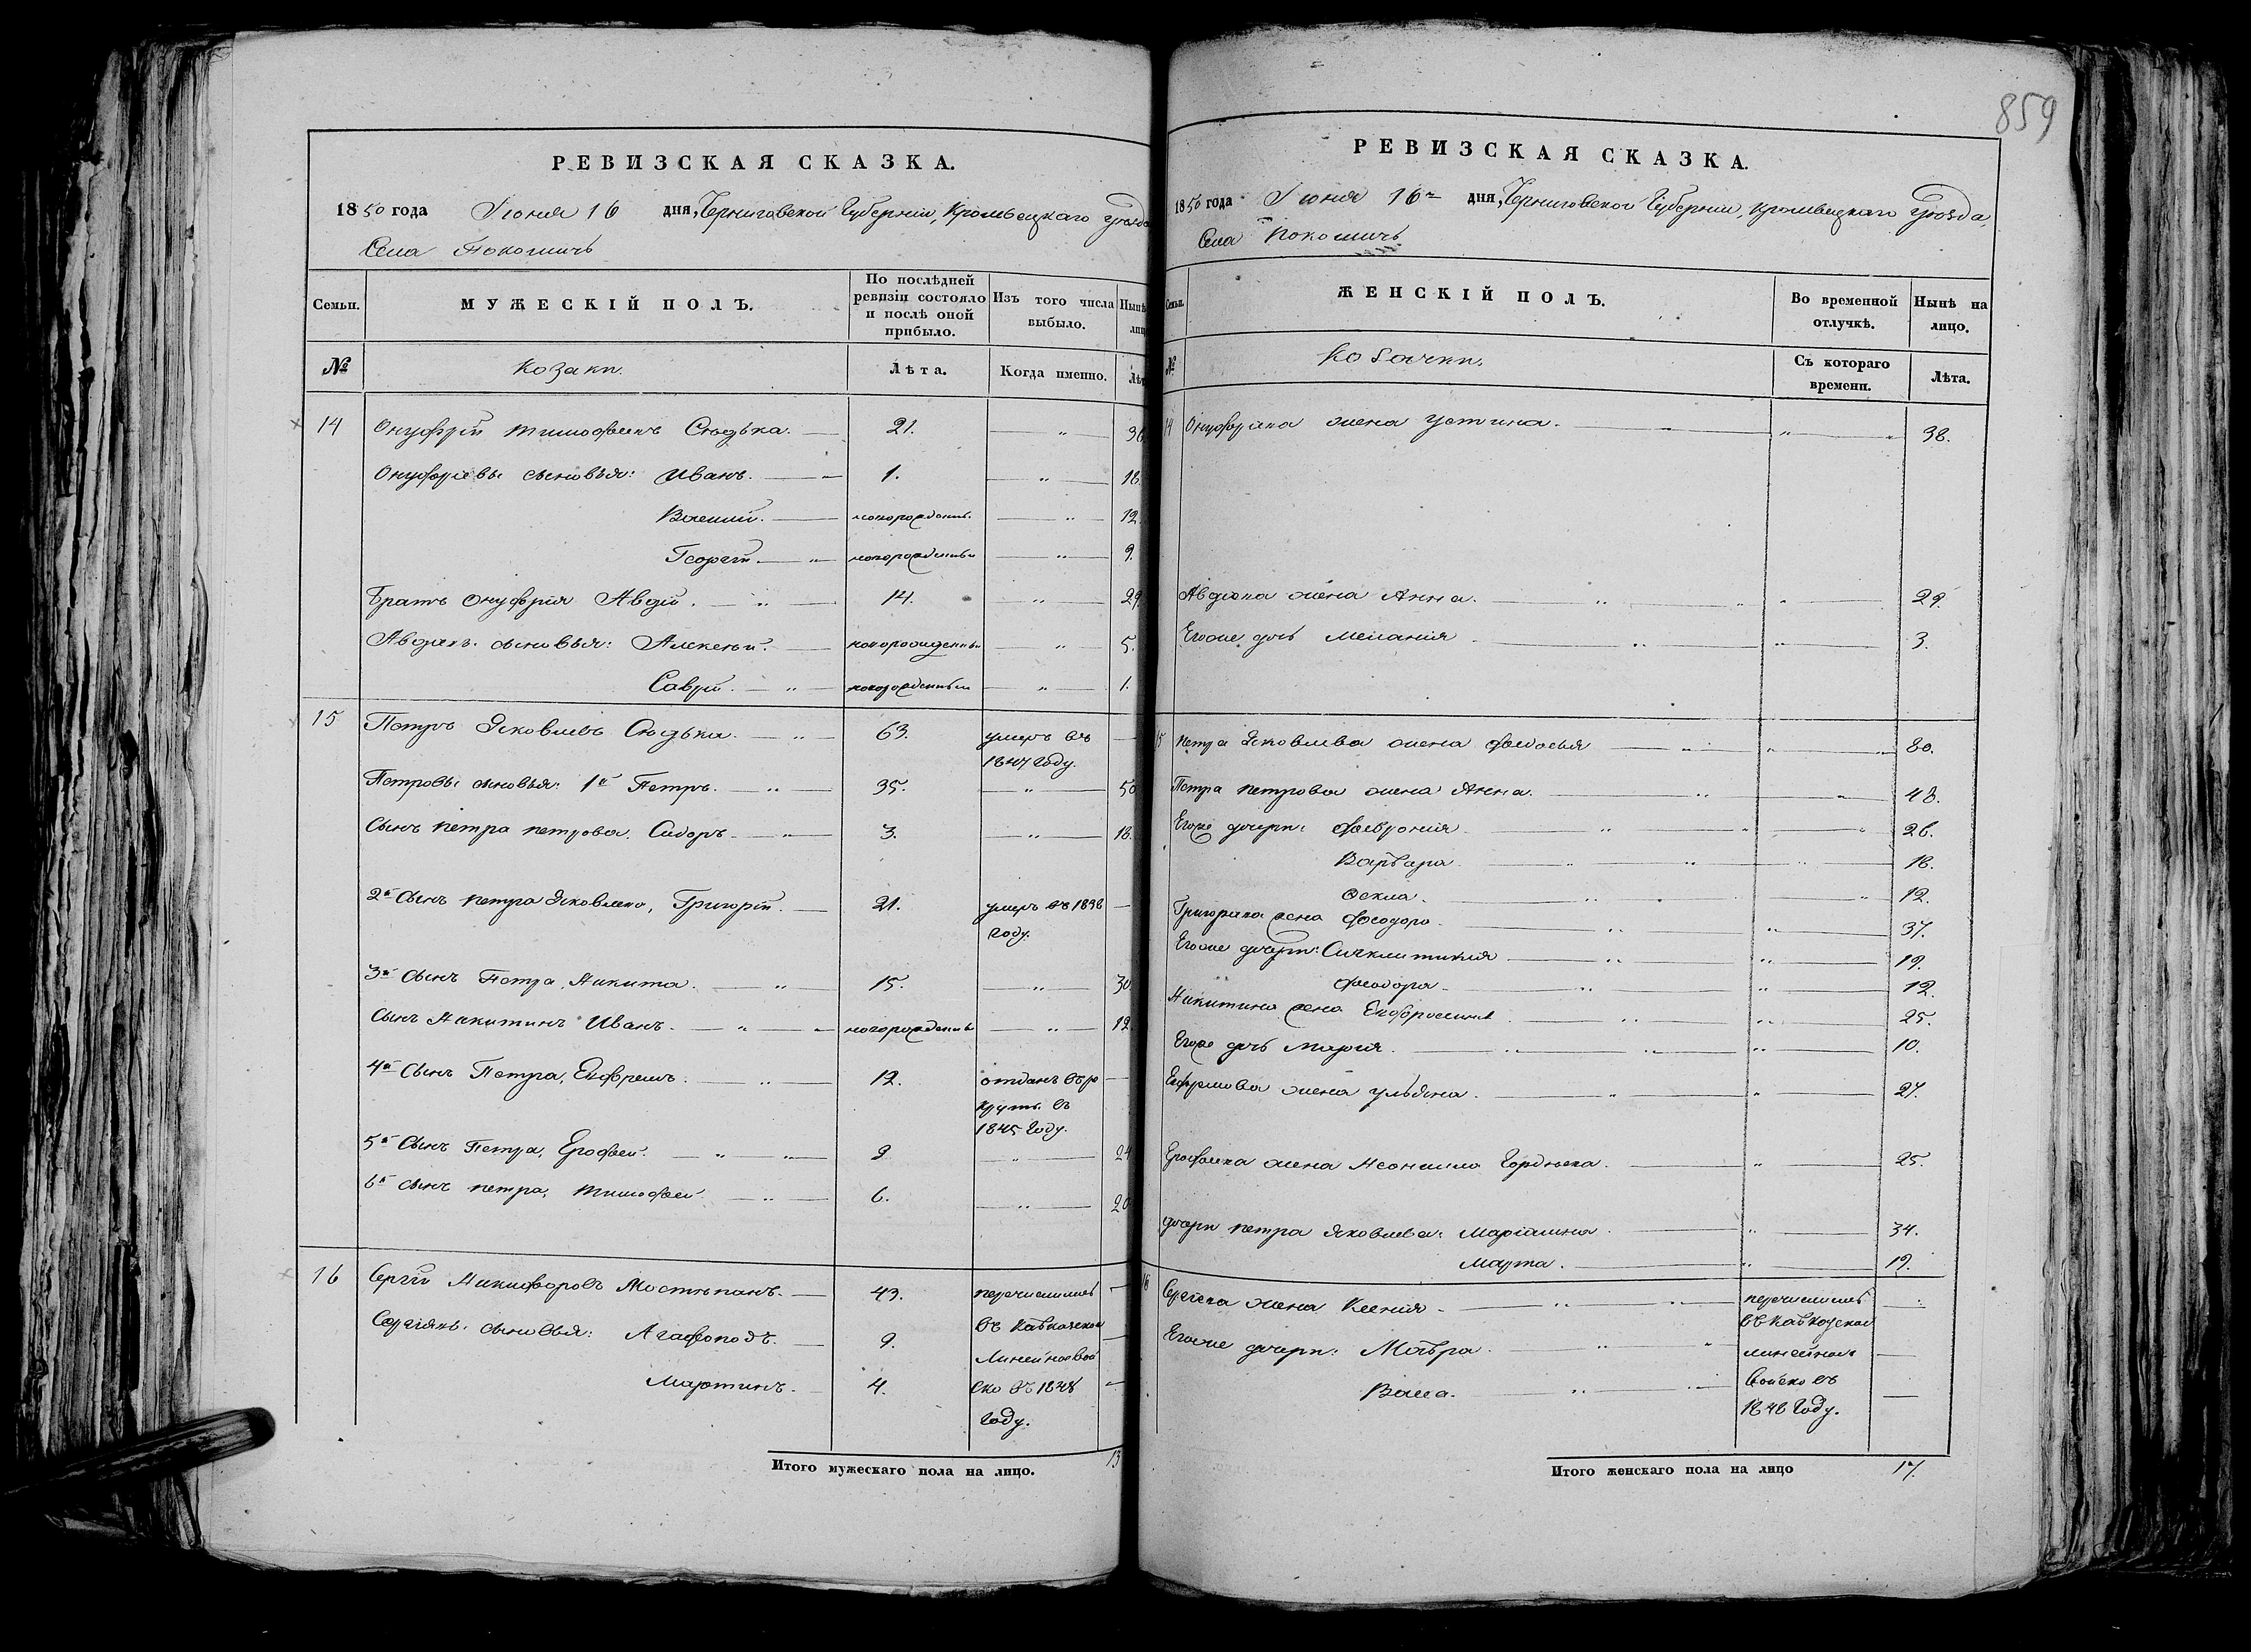 859
РЕВИЗСКАЯ СКАЗКА.
1850 года Іюня 16 дня, Черниговской Губерніи, Кролевецкаго уѣзда
Села Покошичь
Семьи. МУЖЕСКІЙ ПОЛЪ. По послѣдней ревизіи состояло и послѣ оной прибыло. Изъ того числа выбыло. Нынѣ
№ Козаки. Лѣта. Когда именно.
14 Онуфрій Тимофеевъ Сюдька. 21. " 36.
Онуфріевы сыновья: Иванъ. 1. " 16.
Василій. новорожденъ. " 12.
Георгій. новорожденный " 9.
Братъ Онуфрія Авдій. 14. " 29.
Авдіевы сыновья: Алексѣй. новорожденный " 5.
Саврій. новорожденный " 1.
15 Петръ Яковлевъ Сюдька. 63. умеръ въ
1847 году.
Петровы сыновья: 1й Петръ. 35. " 50
Сынъ Петра Петрова, Сидоръ 3. " 18.
2й Сынъ Петра Яковлева, Григорій. 21. умеръ въ 1838
году.
3й Сынъ Петра, Никита. 15. " 30.
Сынъ Никитинъ Иванъ. новорожденный " 12.
4й Сынъ Петра, Ефремъ. 12. отданъ въ ре
круты въ
1845 году.
5й Сынъ Петра, Ерофей. 9 " 24
6й Сынъ Петра, Тимофей 6. " 20
16 Сергій Никифоровъ Мостипанъ. 43. перечислились
Сергіевы сыновья: Агафоподъ. 9. въ Кавказское
Линейное вой
Мартинъ. 4. ско въ 1848
году.
Итого мужескаго пола на лицо. 13
РЕВИЗСКАЯ СКАЗКА.
1850 года Іюня 16 дня, Черниговской Губерніи, Кролевецкаго уѣзда,
Села Покошичь
Семьи. ЖЕНСКІЙ ПОЛЪ. Во временной отлучкѣ. Нынѣ на лицо.
№ Козачки. Съ котораго времени. Лѣта.
14 Онуфріева жена Устина. " 38.
Авдіева жена Анна. " 29.
Егоже дочь Меланія " 3.
15 Петра Яковлева жена Феодосья " 80.
Петра Петрова жена Анна. " 48.
Егоже дочери: Февронія " 26.
Варвара " 18.
Фекла. " 12.
Григорьева жена Феодора. " 37.
Егоже дочери: Синклитикія " 19.
Феодора " 12.
Никитина жена Ефросинія " 25.
Егоже дочь Марія. " 10.
Ефремова жена Ульяна. " 27.
Ерофеева жена Неонила Гордѣева. " 25.
Дочери Петра Яковлева: Маріамна " 34.
Марта. " 19.
16 Сергіева жена Ксенія перечислились
въ Кавказское
Егоже дочери: Мавра линейное
Васса. войско въ
1848 году.
Итого женскаго пола на лицо 17.